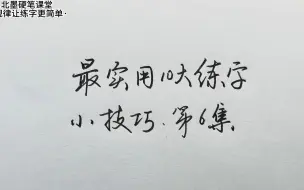 北墨硬笔课堂
规律让练字更简单·
最实用10大练字
小技巧·第6集